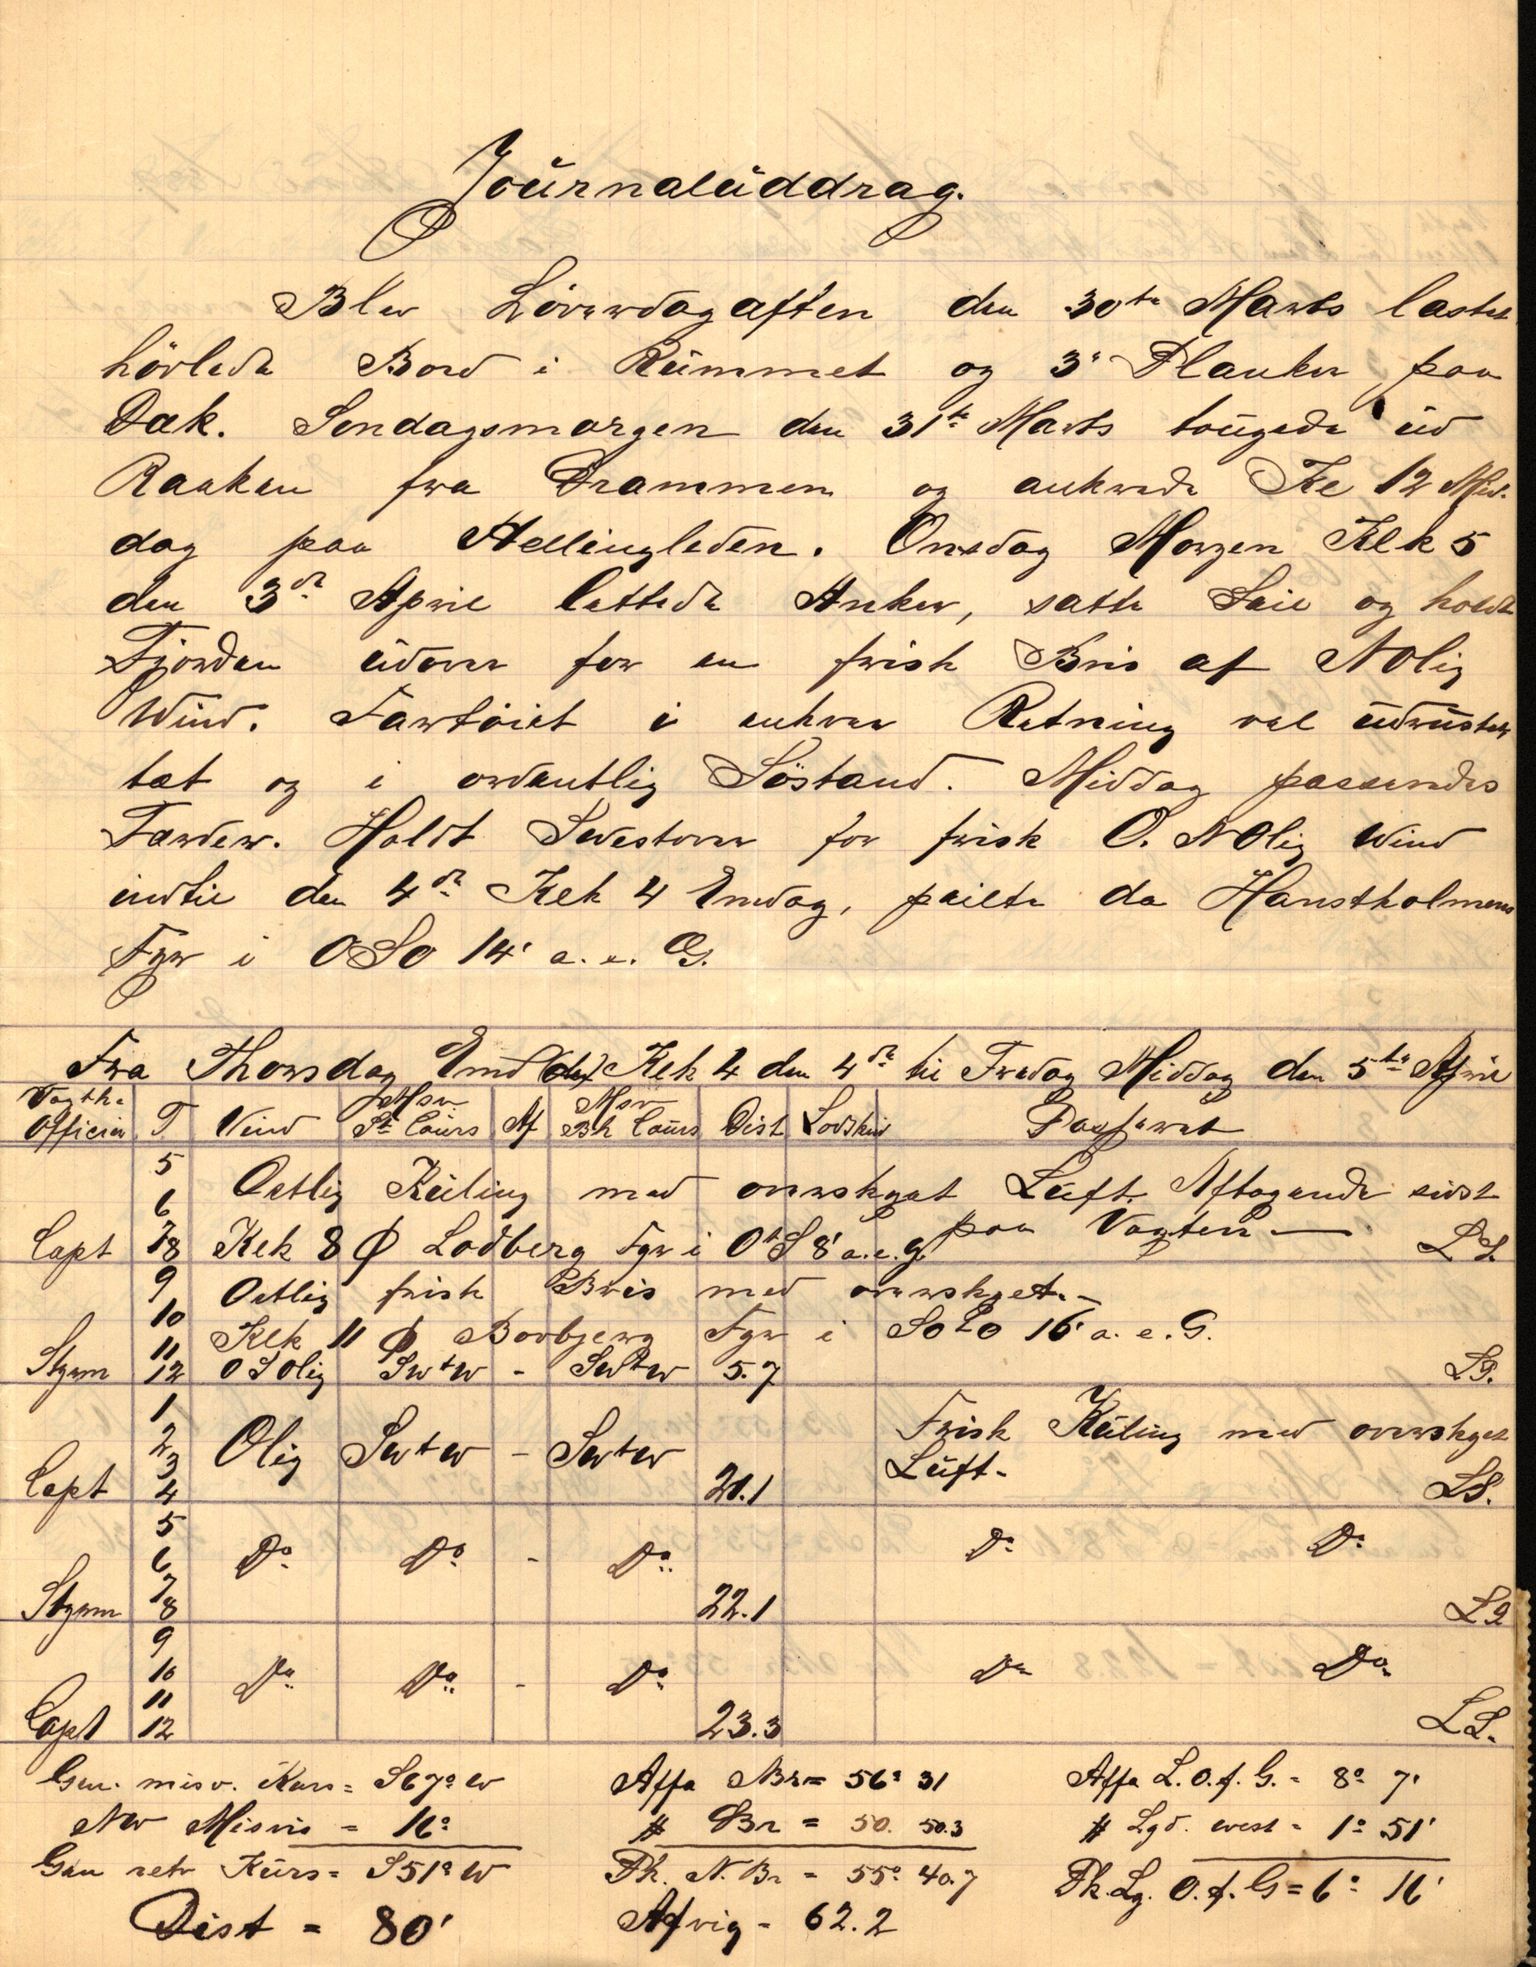 Journaluddrag.
Blev Löverdagaften den 30te Marts lastet
hövlede Bord i Rummet og 3" Planker paa
Dæk. Søndagsmorgen den 31te Marts tougede ud
Raaken fra Drammen og ankrede Kl 12 Mid-
dag paa Hellingleden. Onsdag Morgen Klk 5
den 3die April lettede Anker, satte Seil og holdt
Fjorden udover for en frisk Bris af NOlig
Wind. Fartöiet i enhver Retning vel udrustet
tæt og i ordentlig Söstand. Middag passerdes
Færder. Holdt Sydvestover for frisk O. NOlig Wind
indtil den 4de Klk 4 Emdag, peilte da Hanstholmens
Fyr i OSO 14' a. e. G.
Fra Thorsdag Emd Klk 4 den 4de til Fredag Middag den 5te April
Vagth. Officier T Vind Msv. St. Cours Af Msv. Bh. Cours Dist Lodskud Passeret
5
6 Ostlig Kuling med overskyet Luft. Aftagende sidst
paa Vagten
Capt 7 8 Klk 8 Φ Lodberg Fyr i OtS 8' a. e. g. LS
9 Ostlig frisk Bris med overskyet.
10
11 Klk 11 Φ Bovbjerg Fyr i SOtO 16' a. e. G.
Styrm 12 OSOlig SWtW - SWtW 5.7 LS.
1
2 Olig SWtW - SWtW Frisk Kuling med overskyet
3 Luft.
Capt 4 21.1 LS.
5
6 Do Do - Do Do Do
7
Styrm 8 22.1 LS
9
10 Do Do - Do Do Do
11
Capt 12 23.3 LS.
Gen. misv. Kurs = S67° W Affa Br = 56° 31 Affa L. O. f. G. = 8° 7'
NW Misvis = 16° # Br = 50. 50.3 # Lgd. west = 1° 51'
Gen retv Kurs = S51° W Pk. N. Br = 55° 40.7 Pk. Lg. O. f. G = 6° 16'
Dist = 80' Afvig = 62.2